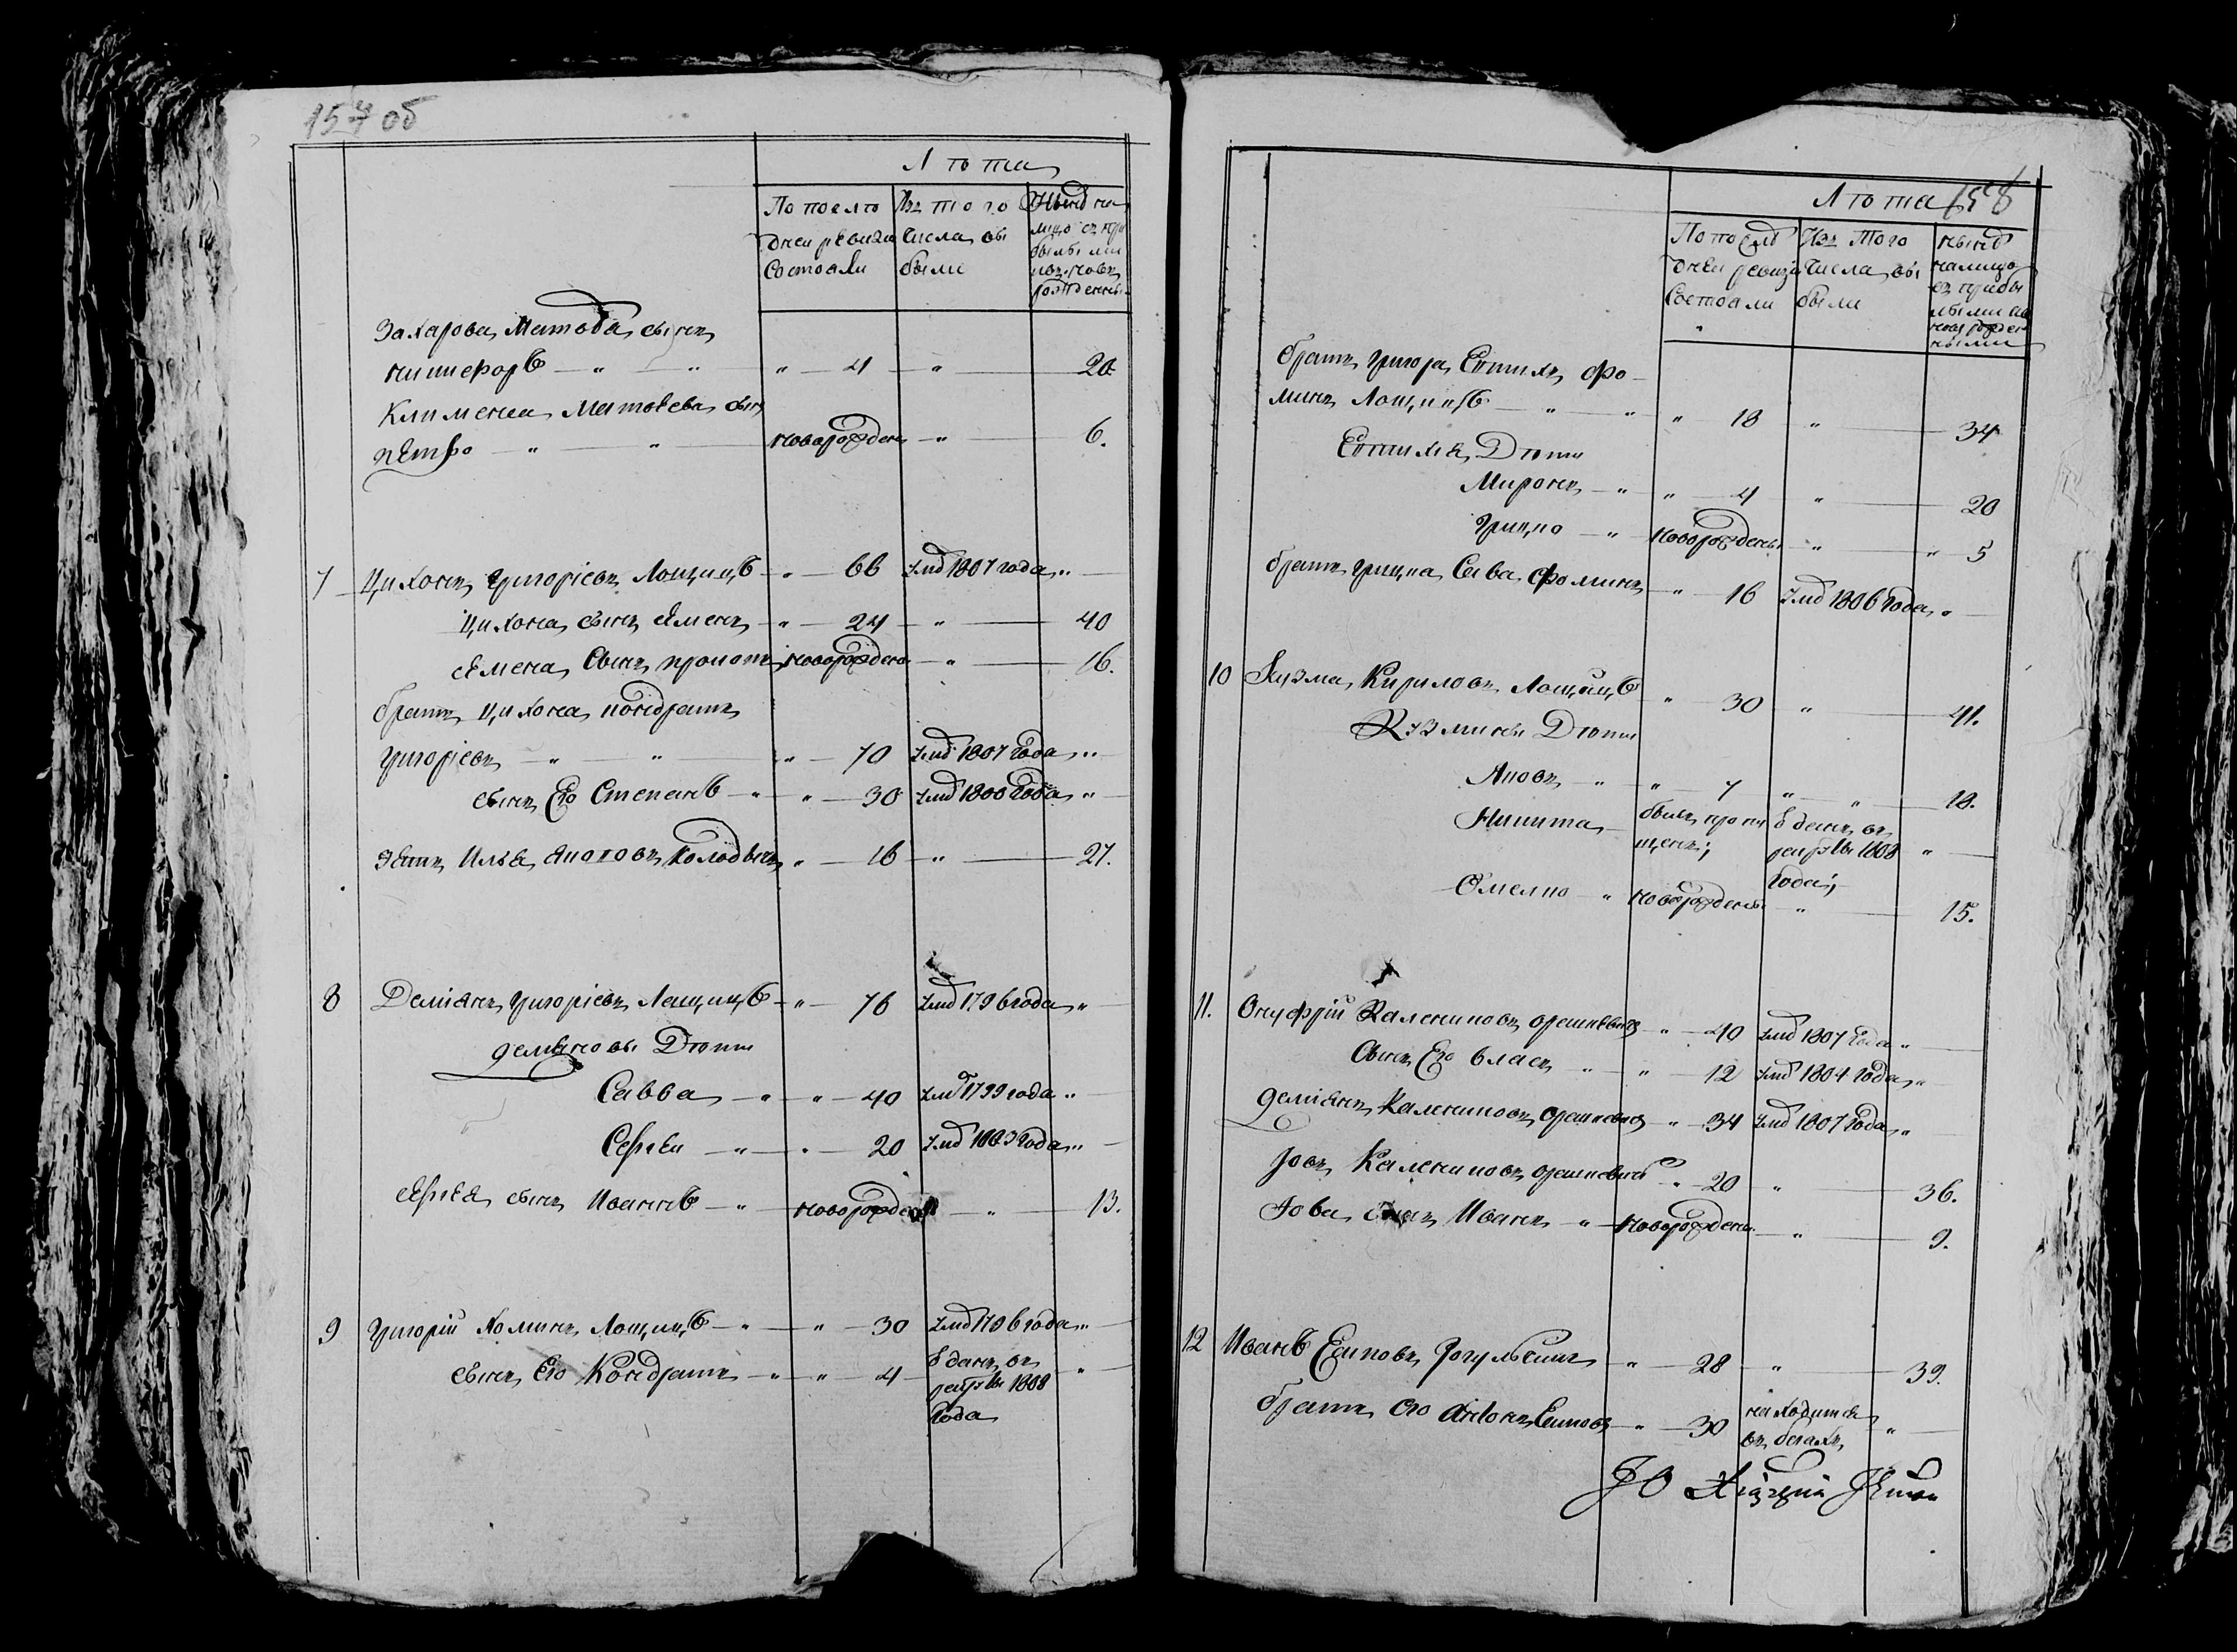 157 об
Лѣта
По послѣ
дней ревизи
Состояли
Из того
Числа вы
были
Нынѣ на
лицо съ при
былыми
Захарова Матвѣя сынъ
никифоръ — " — " " — 4 — " — 20.
Клименка Матвѣева сынъ
петро — " — " новорожден — " — 6.
7 Цихонъ Григоріевъ Лощицъ — " — 66 Умѣ 1807 года "
Цихона сынъ семенъ — " — 24 — " — 40
семена Сынъ прокопъ новорожден — " — 16.
братъ Цихона кондратъ
григоріевъ — " — " — " — 70 Умѣ 1807 года "
сынъ Его Степанъ — " — " — 30 Умѣ 1800 года "
зять Илья Колодычъ " — 16 — " — 27.
8 Деміянъ григоріевъ Лощицъ — " — 76 Умѣ 1796 года "
демяновы Дѣти
Савва — " — " — 40 Умѣ 1799 года "
Сергѣи — " — " — 20 Умѣ 1803 года "
сергѣя сынъ Иванъ — " — новорожден — " — 13.
9 григорій Хоминъ Лощицъ — " — " — 30 Умѣ 1796 года "
сынъ Его Кондратъ — " — " — 4 — Зданъ въ "
рекруты 1808
года
158
Лѣта
По послѣ
дней ревизи
Состояли
Изъ того
Числа вы
были
нынѣ
налицо
съ прибы
лыми
братъ григора Евтихъ фо
минъ Лощицъ — " — " " 18 " — 34
Евтиха Дѣти
Миронъ — " " — 4 " — 20
грицко — " новорожденъ — " " 5
братъ грицка Сава фоминъ — " — 16 Умѣ 1806 года "
10 Кузма Кириловъ Лощицъ " — 30 " — 41.
Кузмины Дѣти
Яковъ — " " — 7 " — " — 18.
Никита — былъ пропу Зданъ въ
щенъ; рекруты 1808 "
года;
Омелко — " новорожденъ " — 15.
11. Онуфрій Калениковъ орешкевичъ — " — 40 Умѣ 1807 года "
Сынъ Его власъ " — " — 12 Умѣ 1804 года "
деміянъ Калениковъ орешкевичъ — " — 34 Умѣ 1807 года "
Іовъ Калениковъ орешкевичъ " — 20 " — 36.
Іова Сынъ Иванъ — " — новорожденъ — " — 9.
12 Иванъ Есиповъ — " — 28 — " — 39.
братъ его Антонъ Есиповъ — " — 30 находится "
въ бегахъ